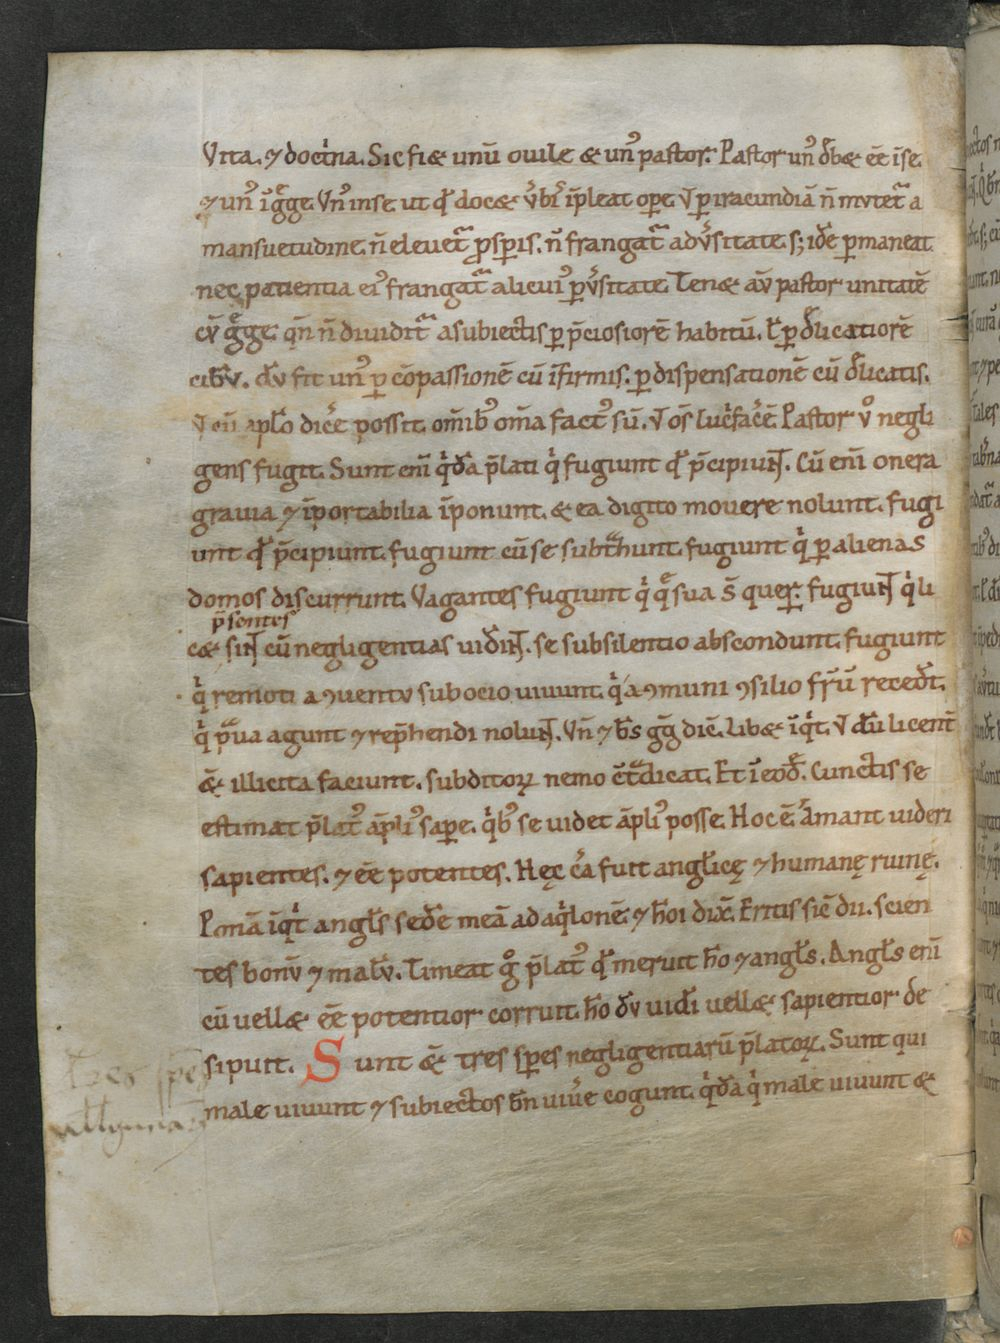 Vita. ⁊ doct͛na. Sic fi& unū ouile & un᷒ pastor. Pastor un᷒ đb& eē īse.
⁊ un᷒ ī gͣge. Vn᷒ inse ut qđ doc& ūbı īpleat ope. ꝟ ꝑ iracundiā ñ mutet᷑ a
mansuetudine. ñ eleuet᷑ ꝓsꝑis. ñ frangat᷑ adūsitate s; idē ꝑmaneat.
nec patientia ei᷒ frangat᷑ alicui᷒ ꝑūsitate. Ten& aū pastor unitatē
cū gͣge. qñ ñ diuidit᷑ a subiectis ꝑ p̄ciosiorē habitū. ł ꝑ đlicatiorē
cibū. dū fit un᷒ ꝑ cōpassionē cū īfirmis. ꝑ dispensationē cū đlicatis.
aplo dicē possit. omīb᷒ om̄a fact᷒ sū. ꝟ om̄s luc͛facē. Pastor ꝟo negli
gens fugit. Sunt eni q͛đa p̄lati q͛ fugiunt qđ p̄cipiunt. Cū eni onera
grauia ⁊ īportabilia īponunt. & ea digito mouere nolunt. fugi
unt qđ p̄cipiunt. fugiunt cū se subtͣhunt. fugiunt q͛ ꝑ alienas
domos discurrunt. Vagantes fugiunt q͛ q̄ sua s̄ quer̄. fugiunt q͛ li
p̄sentes
c& sint cū negligentias uiđint. se sub silentio abscondunt. fugiunt
q͛ remoti a ꝯuentu sub ocio uiuunt. q͛ a ꝯmuni ꝯsilio fr̄ū receđt.
q͛ pͣua agunt ⁊ rep̄hendi nolunt. Vñ ⁊ b̄s gg̃ dic̄. lib& īq͛t. ꝟ dū licent̄
&̄ illicita faciunt. subditoꝝ nemo ꝯtͣdicat. Et ī eođ. Cunctis se
estimat p̄lat᷒ āpli᷒ saꝑe. q͛b᷒ se uidet āpli᷒ posse. Hoc ē amant uideri
sapientes. ⁊ eē potentes. Hęc cā fuit anglicę ⁊ humanę ruinę.
Ponā īq͛t angls sedē meā ad aq͛lonē. ⁊ hoi dix̄. Eritis sic̄ dii. scien
tes bonū ⁊ malū. Timeat gͦ p̄lat᷒ qđ meruit ho ⁊ angls. Angls eni
cū uell& eē potentior corruit. ho dū uidi uell& sapientior de
sipuit. Sunt &̄ tres spēs negligentiarū p̄latoꝝ. Sunt qui
male uiuunt ⁊ subiectos bñ uiuē cogunt. q͛đa q͛ male uiuunt &
tres spēs